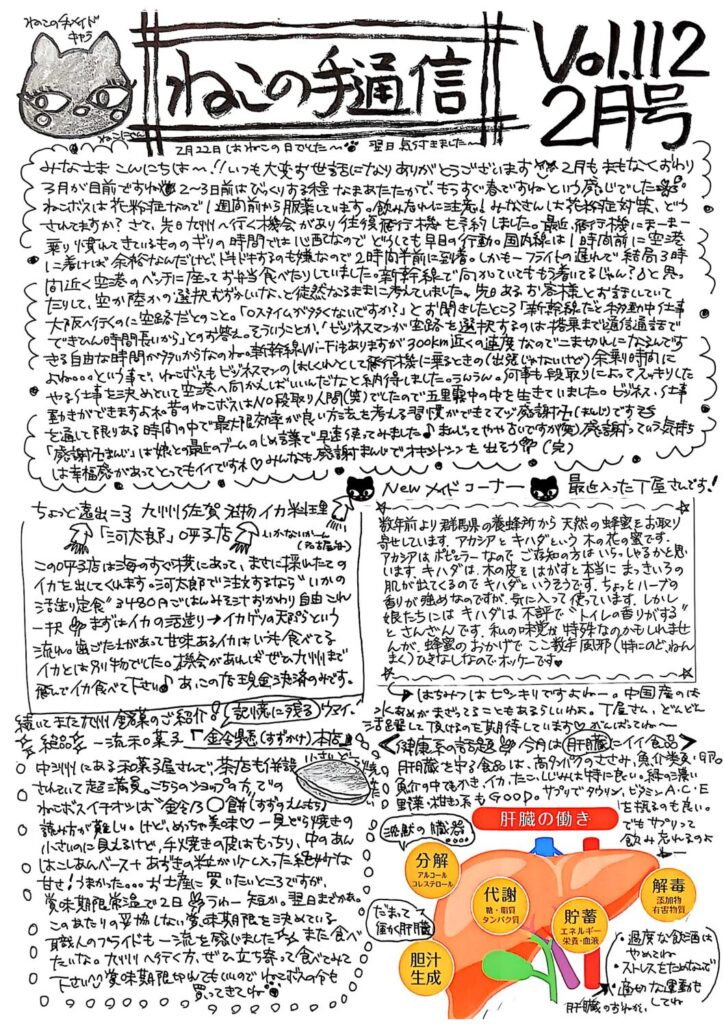 ねこの手メイド
キャラ
ねこにさん
ねこの手通信
Vol.112
2月号
2月22日はねこの日でした〜 翌日気付きました〜
みなさま こんにちは〜!!いつも大変お世話になりありがとうございます 2月もまもなくおわり
3月が目前ですね 2〜3日前はびっくりする程なまあたたかで、もうすぐ春ですねという感じでした
ねこボスは花粉症なので1週間前から服薬しています。飲み忘れに注意!みなさんは花粉症対策、どう
されてますか?さて、先日九州へ行く機会があり往復飛行機を予約しました。最近、飛行機にまーまー
乗り慣れてきているもののギリの時間では心配なので どうしても早目の行動。国内線は1時間前に空港
に着けば余裕なんだけど、ドキドキするのも嫌なので2時間半前に到着。しかもーフライトの遅れで結局3時
間近く空港のベンチに座ってお弁当食べたりしていました。新幹線で向かっていてももう着いてるじゃん?と思っ
たりして、空か陸かの選択むずかしいな、と徒然なるままに考えていました。先日あるお客様とお話ししていて
大阪へ行くのに空路だとのこと。「ロスタイムが多くないですか?」とお聞きしたところ「新幹線だと移動中仕事
できていい時間長いから」とのお答え。そういうことか!ビジネスマンが空路を選択するのは搭乗まで通信通話で
できる自由な時間が多いからなのね。新幹線Wi-Fiもありますが300km近くの速度なのでこま切れになるんです
よね…という事で、ねこボスもビジネスマンのはしくれとして飛行機に乗るときの(出張じゃないけど)余乗り時間に
やる仕事を決めといて空港へ向かえばいいんだなと納得しました。うんうん。何事も段取りによってスッキリした
動きができますよね。昔のねこボスはNO段取り人間(笑)でしたので五里霧中の中を生きていました。ビジネス・仕事
を通して限りある時間の中で最大限効率が良い方法を考える習慣ができてマジ感謝卍(まんじ)です
「感謝卍まんじ」は娘と最近のブームのしめ言葉で早速使ってみました♪まんじってやや古いですが(笑)感謝っていう気持ち
は幸福感があってとってもイイですね♡みんなも感謝まんじでオキシトシンを出そう (完)
ちょっと遠出=3 九州佐賀 名物イカ料理
「河太郎」呼子店
いかないかーん
(名古屋弁)
この呼子店は海のすぐ横にあって、まさに採れたての
イカを出してくれます。河太郎で注文するなら"いかの
活造り定食"3480円ごはんみそ汁おかわり自由 これ
一択 まずはイカの活造り→イカゲソの天ぷらという
流れ。歯ごたえがあって甘味あるイカはいつも食べてる
イカとは別物でした。機会があればぜひ九州まで
飛んでイカ食べて下さい♪ あ、この店現金決済のみです。
New メイドコーナー 最近入った丁屋さんです!
数年前より群馬県の養蜂所から天然の蜂蜜をお取り
寄せしています。アカシアとキハダという木の花の蜜です。
アカシアはポピュラーなので ご存知の方はいらっしゃるかと思
います キハダは、木の皮をはがすと本当に まっきいろの
肌が出てくるので キハダというそうです。ちょっとハーブの
香りが強めなのですが、気に入って使っています。しかし
娘たちには キハダは 不評で"トイレの香りがする"
とさんざんです。私の味覚が特殊なのかもしれませ
んが、蜂蜜のおかげで ここ数年 風邪(特にのど、ねん
まく)ひきなしなので オッケーです♥
はちみつはピンキリですよねー。中国産のは
水あめがまざってることもあるらしいわよ。丁屋さん、どんどん
活躍して頂けるのを期待しています♡がんばってね〜
続いてまた九州銘菓のご紹介
記憶に残るウマイ
絶品 一流和菓子「鈴懸(すずかけ)本店」
中洲川にある和菓子屋さんで、茶店も併設
さんざいて超満員。こちらのショップの方での
ねこボスイチオシは"鈴乃〇餅(すずのえんもち)
読み方が難しい。けど、めっちゃ美味♡一見どら焼きの
小さいのに見えるけど、手焼きの皮はもっちり、中のあん
はこしあんベース+あずきの粒が少し入った絶妙な
甘さ!うまかった…お土産に買いたいところですが、
賞味期限常温で2日 うわー短か。翌日までかぁ。
このあたりの妥協しない賞味期限を決めている
職人のプライドも一流を感じました また食べ
たいな。九州へ行く方、ぜひ立ち寄って食べてみて
下さい 賞味期限切れてもいいので ねこボスの分も
買ってきてね
健康系の話題 今月は肝臓にイイ食品
肝臓を守る食品は、高タンパクのささみ、魚介類、貝・卵。
魚介の中でもかき、イカ、たこ、しじみは特に良い。緑の濃い
野菜・柑橘系もGOOD。サプリでタウリン、ビタミンA・C・E
を採るのも良い。
でもサプリって
飲み忘れるのよ
沈黙の臓器
だまって
働く肝臓
肝臓の働き
分解
アルコール
コレステロール
代謝
糖・脂質
タンパク質
貯蓄
エネルギー
栄養・血液
解毒
添加物
有害物質
胆汁
生成
・過度な飲酒は
やめてね
・ストレスをためないで
・適切な運動も
してね
肝臓のおねがい